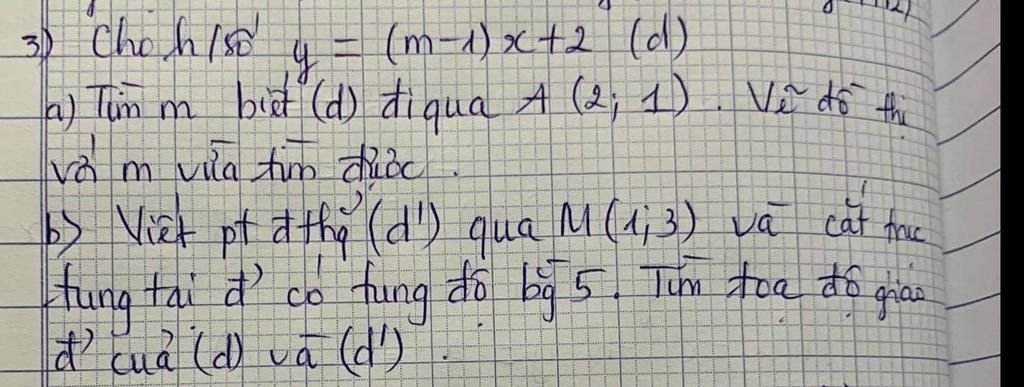 3) Cho h/số y = (m-1)x+2 (d)
a) Tìm m biết (d) đi qua A (2; 1). Vẽ đồ thị
với m vừa tìm được.
b) Viết pt đthg (d') qua M (1;3) và cắt trục
tung tại đ' có tung độ bg 5. Tìm toạ độ giao
đ' của (d) và (d').